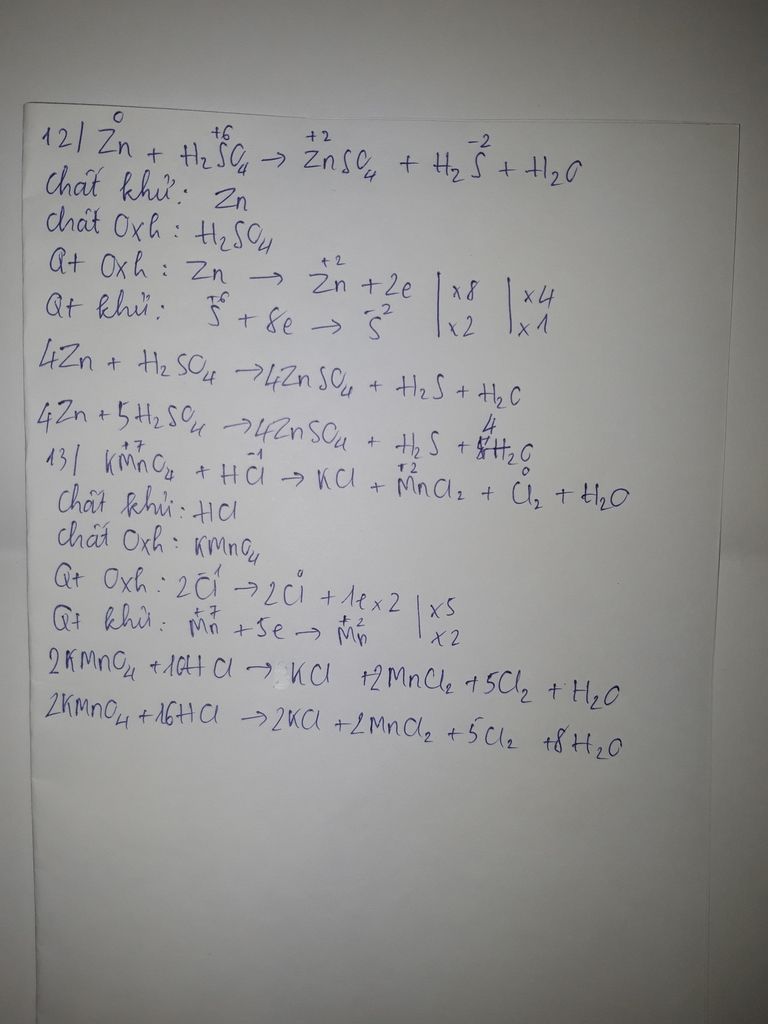 12/ Zn⁰ + H₂S⁺⁶O₄ → Zn⁺²SO₄ + H₂S⁻² + H₂O
Chất khử: Zn
Chất Oxh: H₂SO₄
Qt Oxh: Zn → Zn⁺² + 2e | x8 | x4
Qt khử: S⁺⁶ + 8e → S⁻² | x2 | x1
4Zn + H₂SO₄ → 4ZnSO₄ + H₂S + H₂O
4Zn + 5H₂SO₄ → 4ZnSO₄ + H₂S + 4H₂O
13/ KMn⁺⁷O₄ + HCl⁻¹ → KCl + Mn⁺²Cl₂ + Cl₂⁰ + H₂O
Chất khử: HCl
Chất Oxh: KMnO₄
Qt Oxh: 2Cl⁻¹ → 2Cl⁰ + 1e x 2 | x5
Qt khử: Mn⁺⁷ + 5e → Mn⁺² | x2
2KMnO₄ + 10HCl → KCl + 2MnCl₂ + 5Cl₂ + H₂O
2KMnO₄ + 16HCl → 2KCl + 2MnCl₂ + 5Cl₂ + 8H₂O